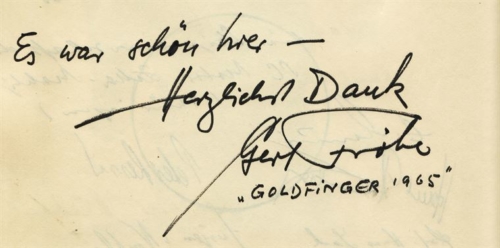 Es war schön hier —
Herzlichst Dank
Gert Fröbe
„GOLDFINGER 1965"